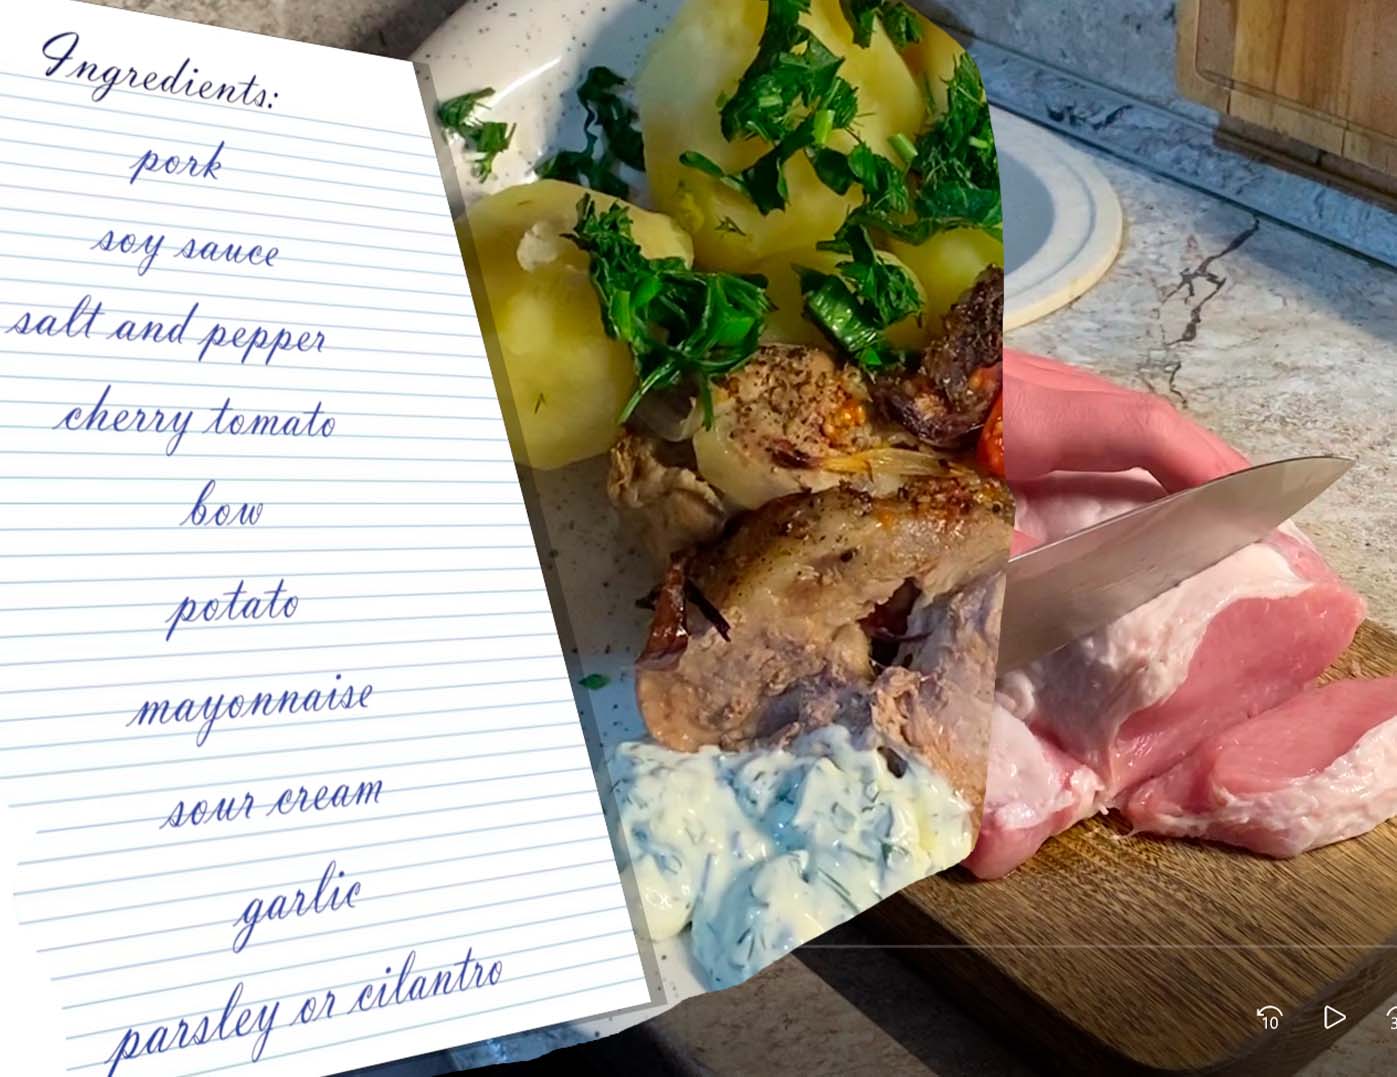 Ingredients:
pork
soy sauce
salt and pepper
cherry tomato
bow
potato
mayonnaise
sour cream
garlic
parsley or cilantro
10